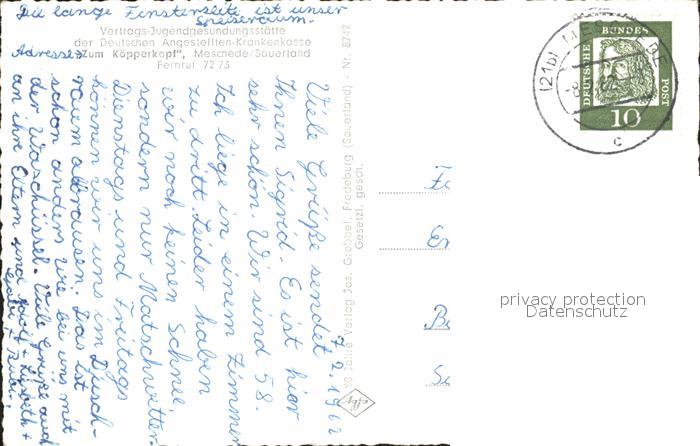 Die lange Fensterseite ist unser
Speiseraum.
Vertrags-Jugendgesundungsstätte
der Deutschen Angestellten-Krankenkasse
Adresse:
"Zum Köpperkopf", Meschede/Sauerland
Fernruf 72 73
7.2.1962
Viele Grüße sendet
Ihnen Sigrid. Es ist hier
sehr schön. Wir sind 58.
Ich liege in einem Zimmer
zu dritt. Leider haben
wir noch keinen Schnee,
sondern nur Matschwetter.
Dienstags und Freitags
können wir uns im Dusch-
raum abbrausen. Das ist
schon anders wie bei uns mit
der Waschüssel. Viele Grüße auch
an ihre Eltern und Adolf + Elsbeth +
30 Jahre Verlag Jos. Grobbel, Fredeburg (Sauerland) - Nr. 8747
Gesetzl. gesch.
(21b) MESCHEDE
c
DEUTSCHE BUNDES POST
10
privacy protection
Datenschutz